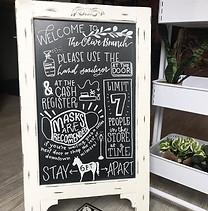 WELCOME TO
The Olive Branch
PLEASE USE THE
hand sanitizer
AT THE
DOOR
& AT THE
CASH
REGISTER
LIMIT
7
PEOPLE
IN THE
STORE
AT A
TIME
MASKS
ARE
RECOMMENDED
if you're
next door or
downtown
STAY
APART!